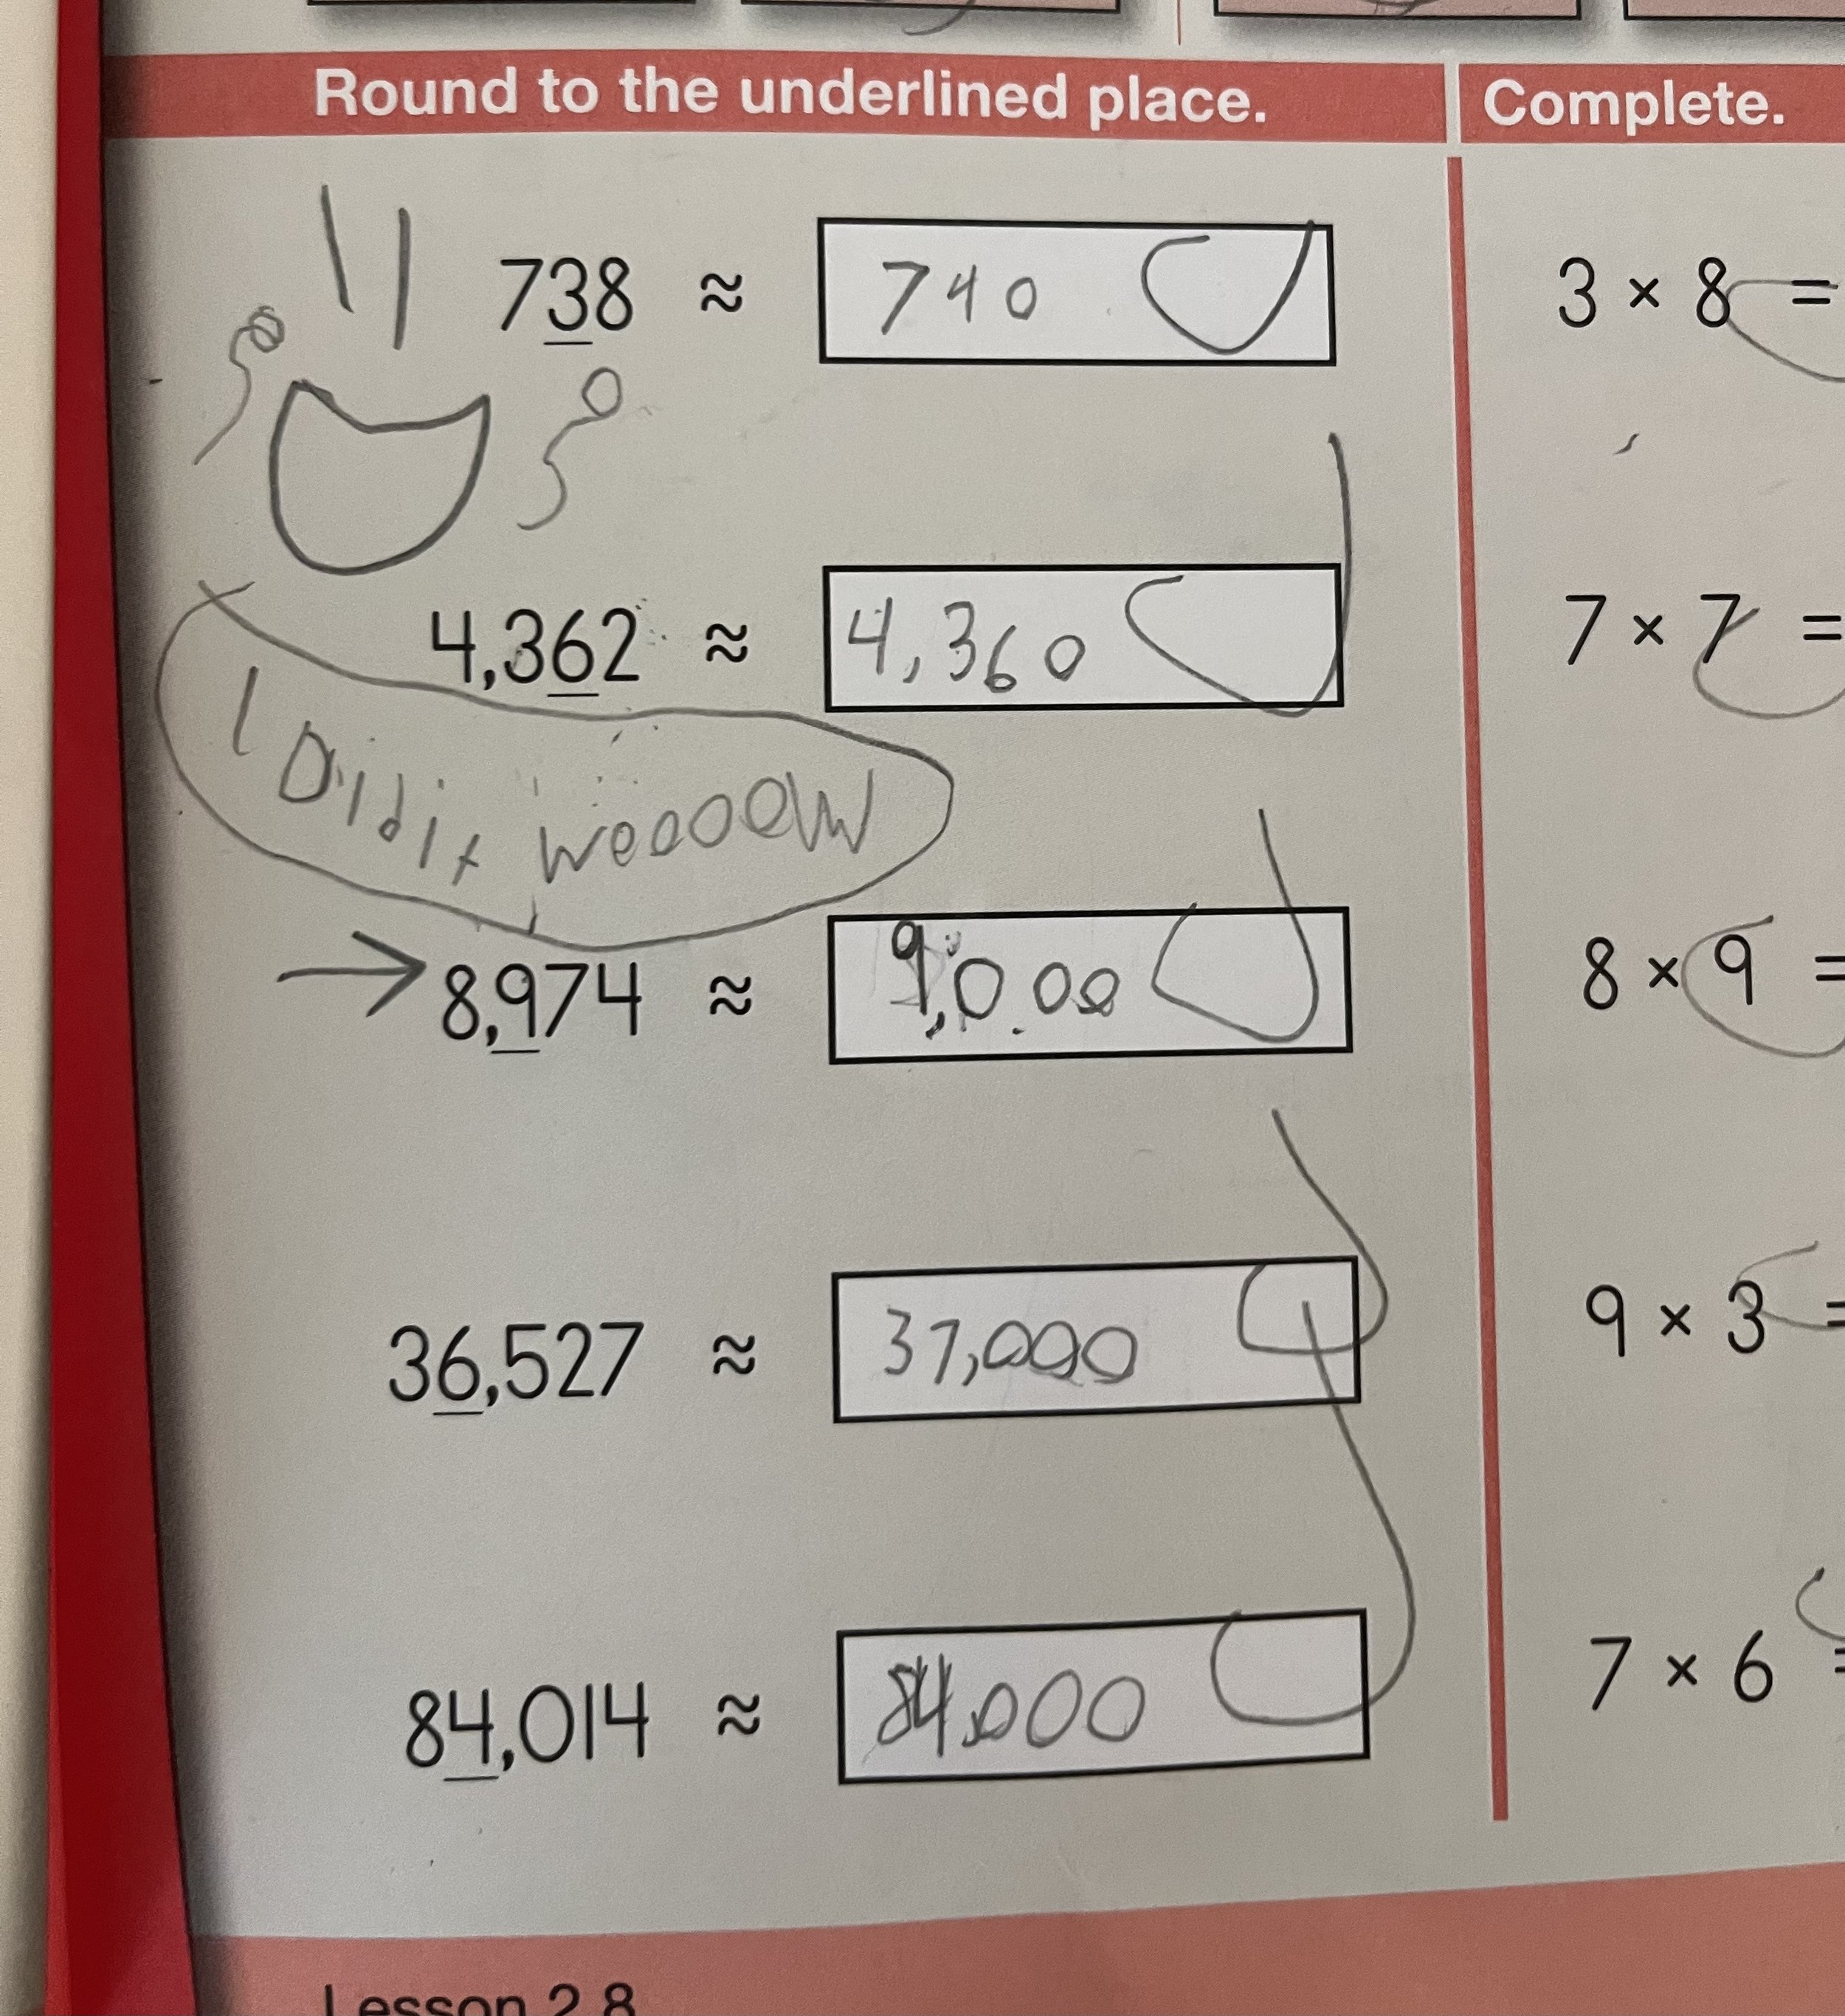 Round to the underlined place.
Complete.
738 ≈ 740
3 × 8 =
4,362 ≈ 4,360
7 × 7 =
I Did it weoooww
8,974 ≈ 9,000
8 × 9 =
36,527 ≈ 37,000
9 × 3 =
84,014 ≈ 84,000
7 × 6 =
Lesson 2.8